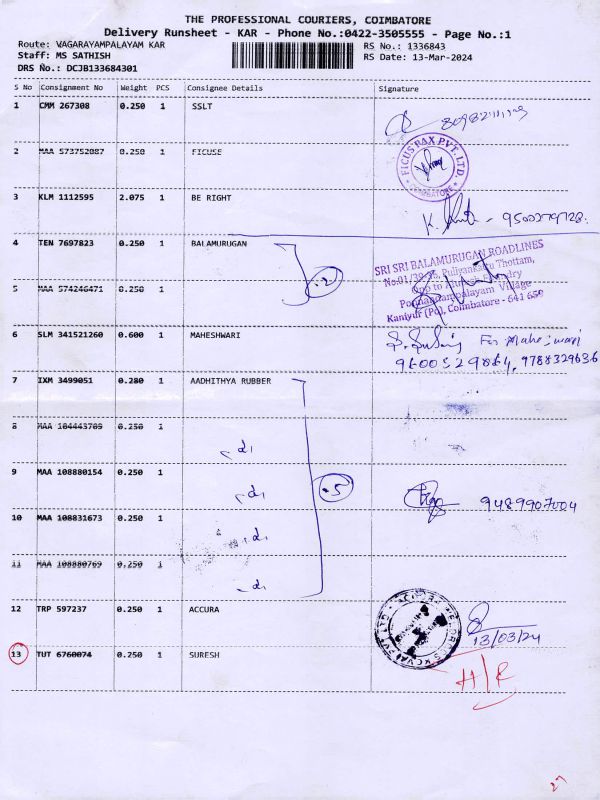 THE PROFESSIONAL COURIERS, COIMBATORE
Delivery Runsheet - KAR - Phone No.:0422-3505555 - Page No.:1
Route: VAGARAYAMPALAYAM KAR RS No.: 1336843
Staff: MS SATHISH RS Date: 13-Mar-2024
DRS No.: DCJB133684301
S No Consignment No Weight PCS Consignee Details Signature
1 CMM 267308 0.250 1 SSLT
2 MAA 573752087 0.250 1 FICUSE
FICUS PAX PVT. LTD.
COIMBATORE
3 KLM 1112595 2.075 1 BE RIGHT
4 TEN 7697823 0.250 1 BALAMURUGAN
2
SRI SRI BALAMURUGAN ROADLINES
Kaniyur (Po), Coimbatore - 641 659
5 MAA 574246471 0.250 1
6 SLM 341521260 0.600 1 MAHESHWARI
For Maheswari
9600529864, 9788329636
7 IXM 3499051 0.280 1 AADHITHYA RUBBER
8 MAA 104443709 0.250 1
9 MAA 108880154 0.250 1
5
9489907004
10 MAA 108831673 0.250 1
11 MAA 108880769 0.250 1
12 TRP 597237 0.250 1 ACCURA
13/03/24
13 TUT 6760074 0.250 1 SURESH
H/R
27